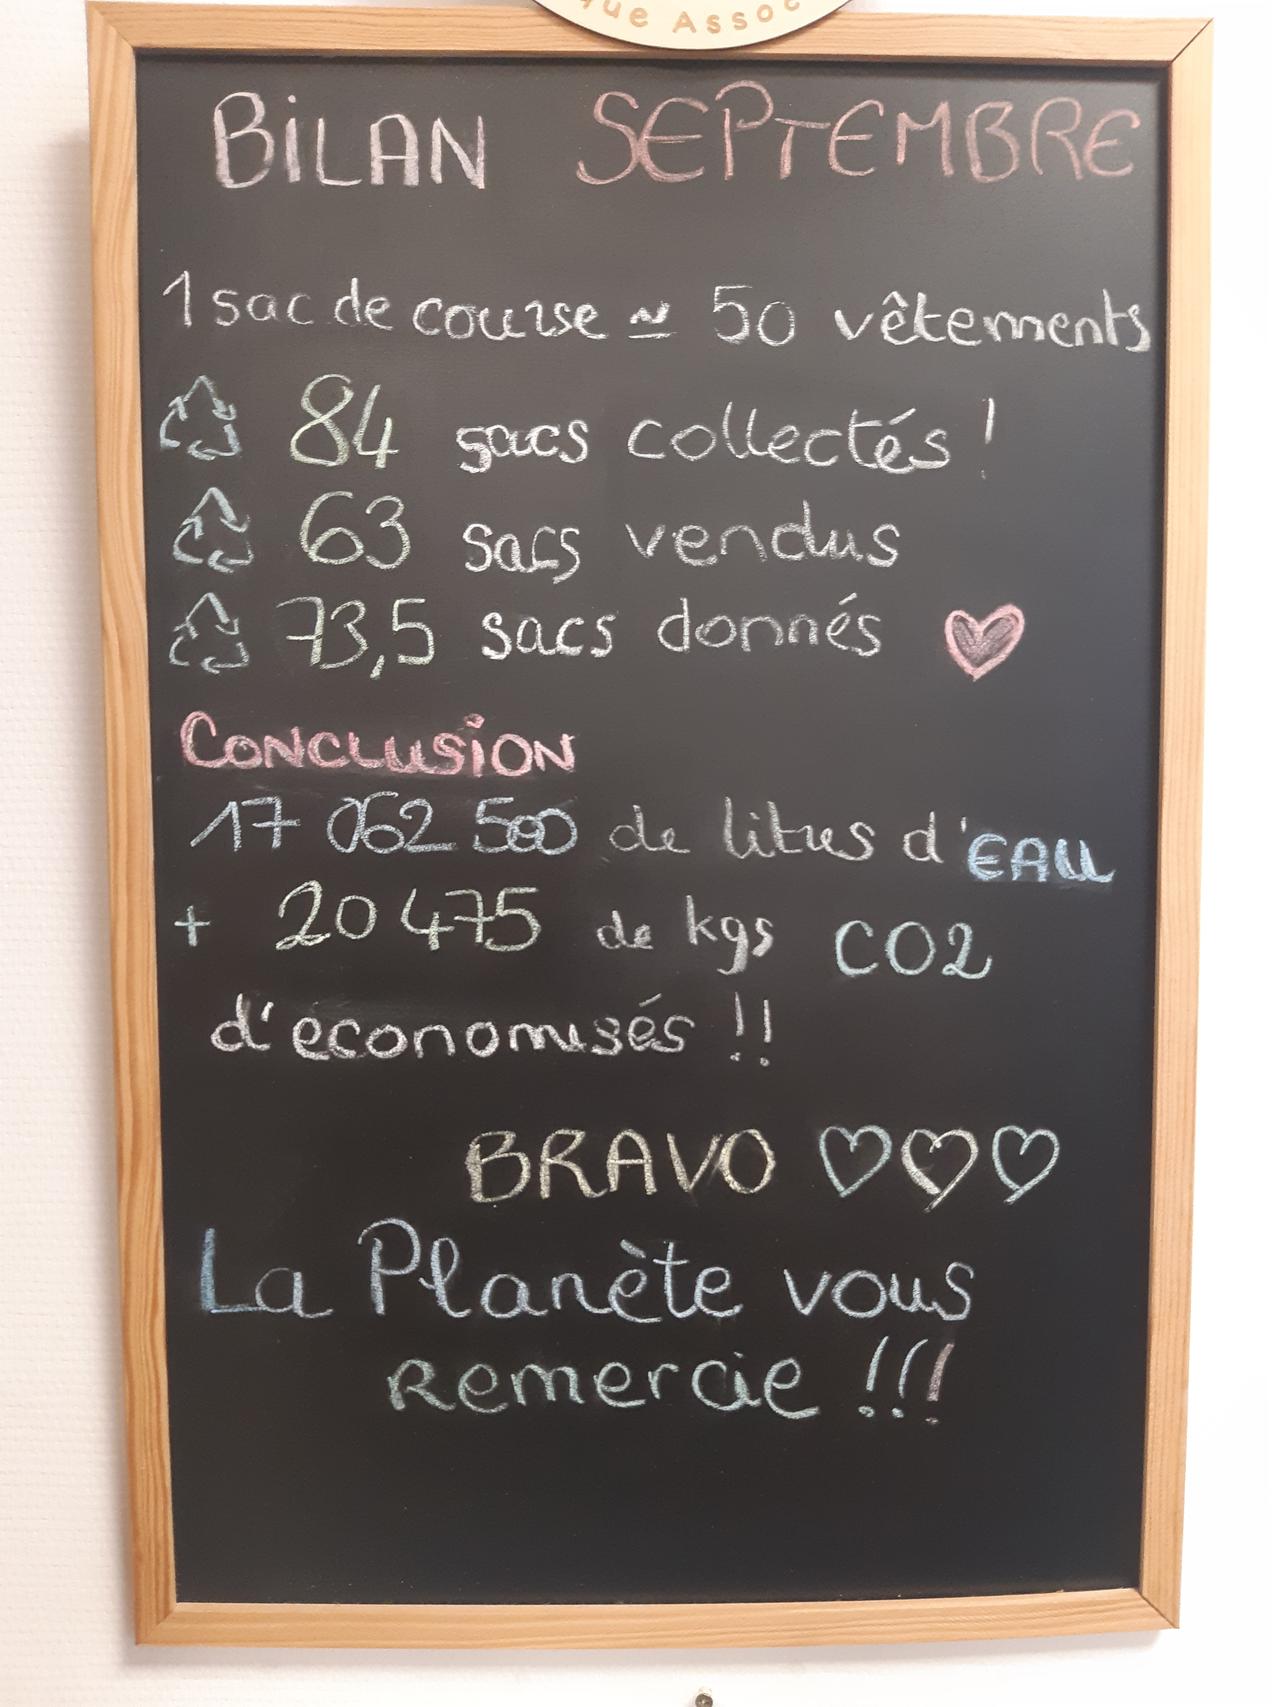 que Assoc
BiLAN SEPTEMBRE
1 sac de course ≃ 50 vêtements
84 sacs collectés !
63 sacs vendus
73,5 sacs donnés
CONCLUSiON
17 062 500 de litres d'EAU
+ 20 475 de kgs CO2
d'économisés !!
BRAVO ♡♡♡
La Planète vous
remercie !!!